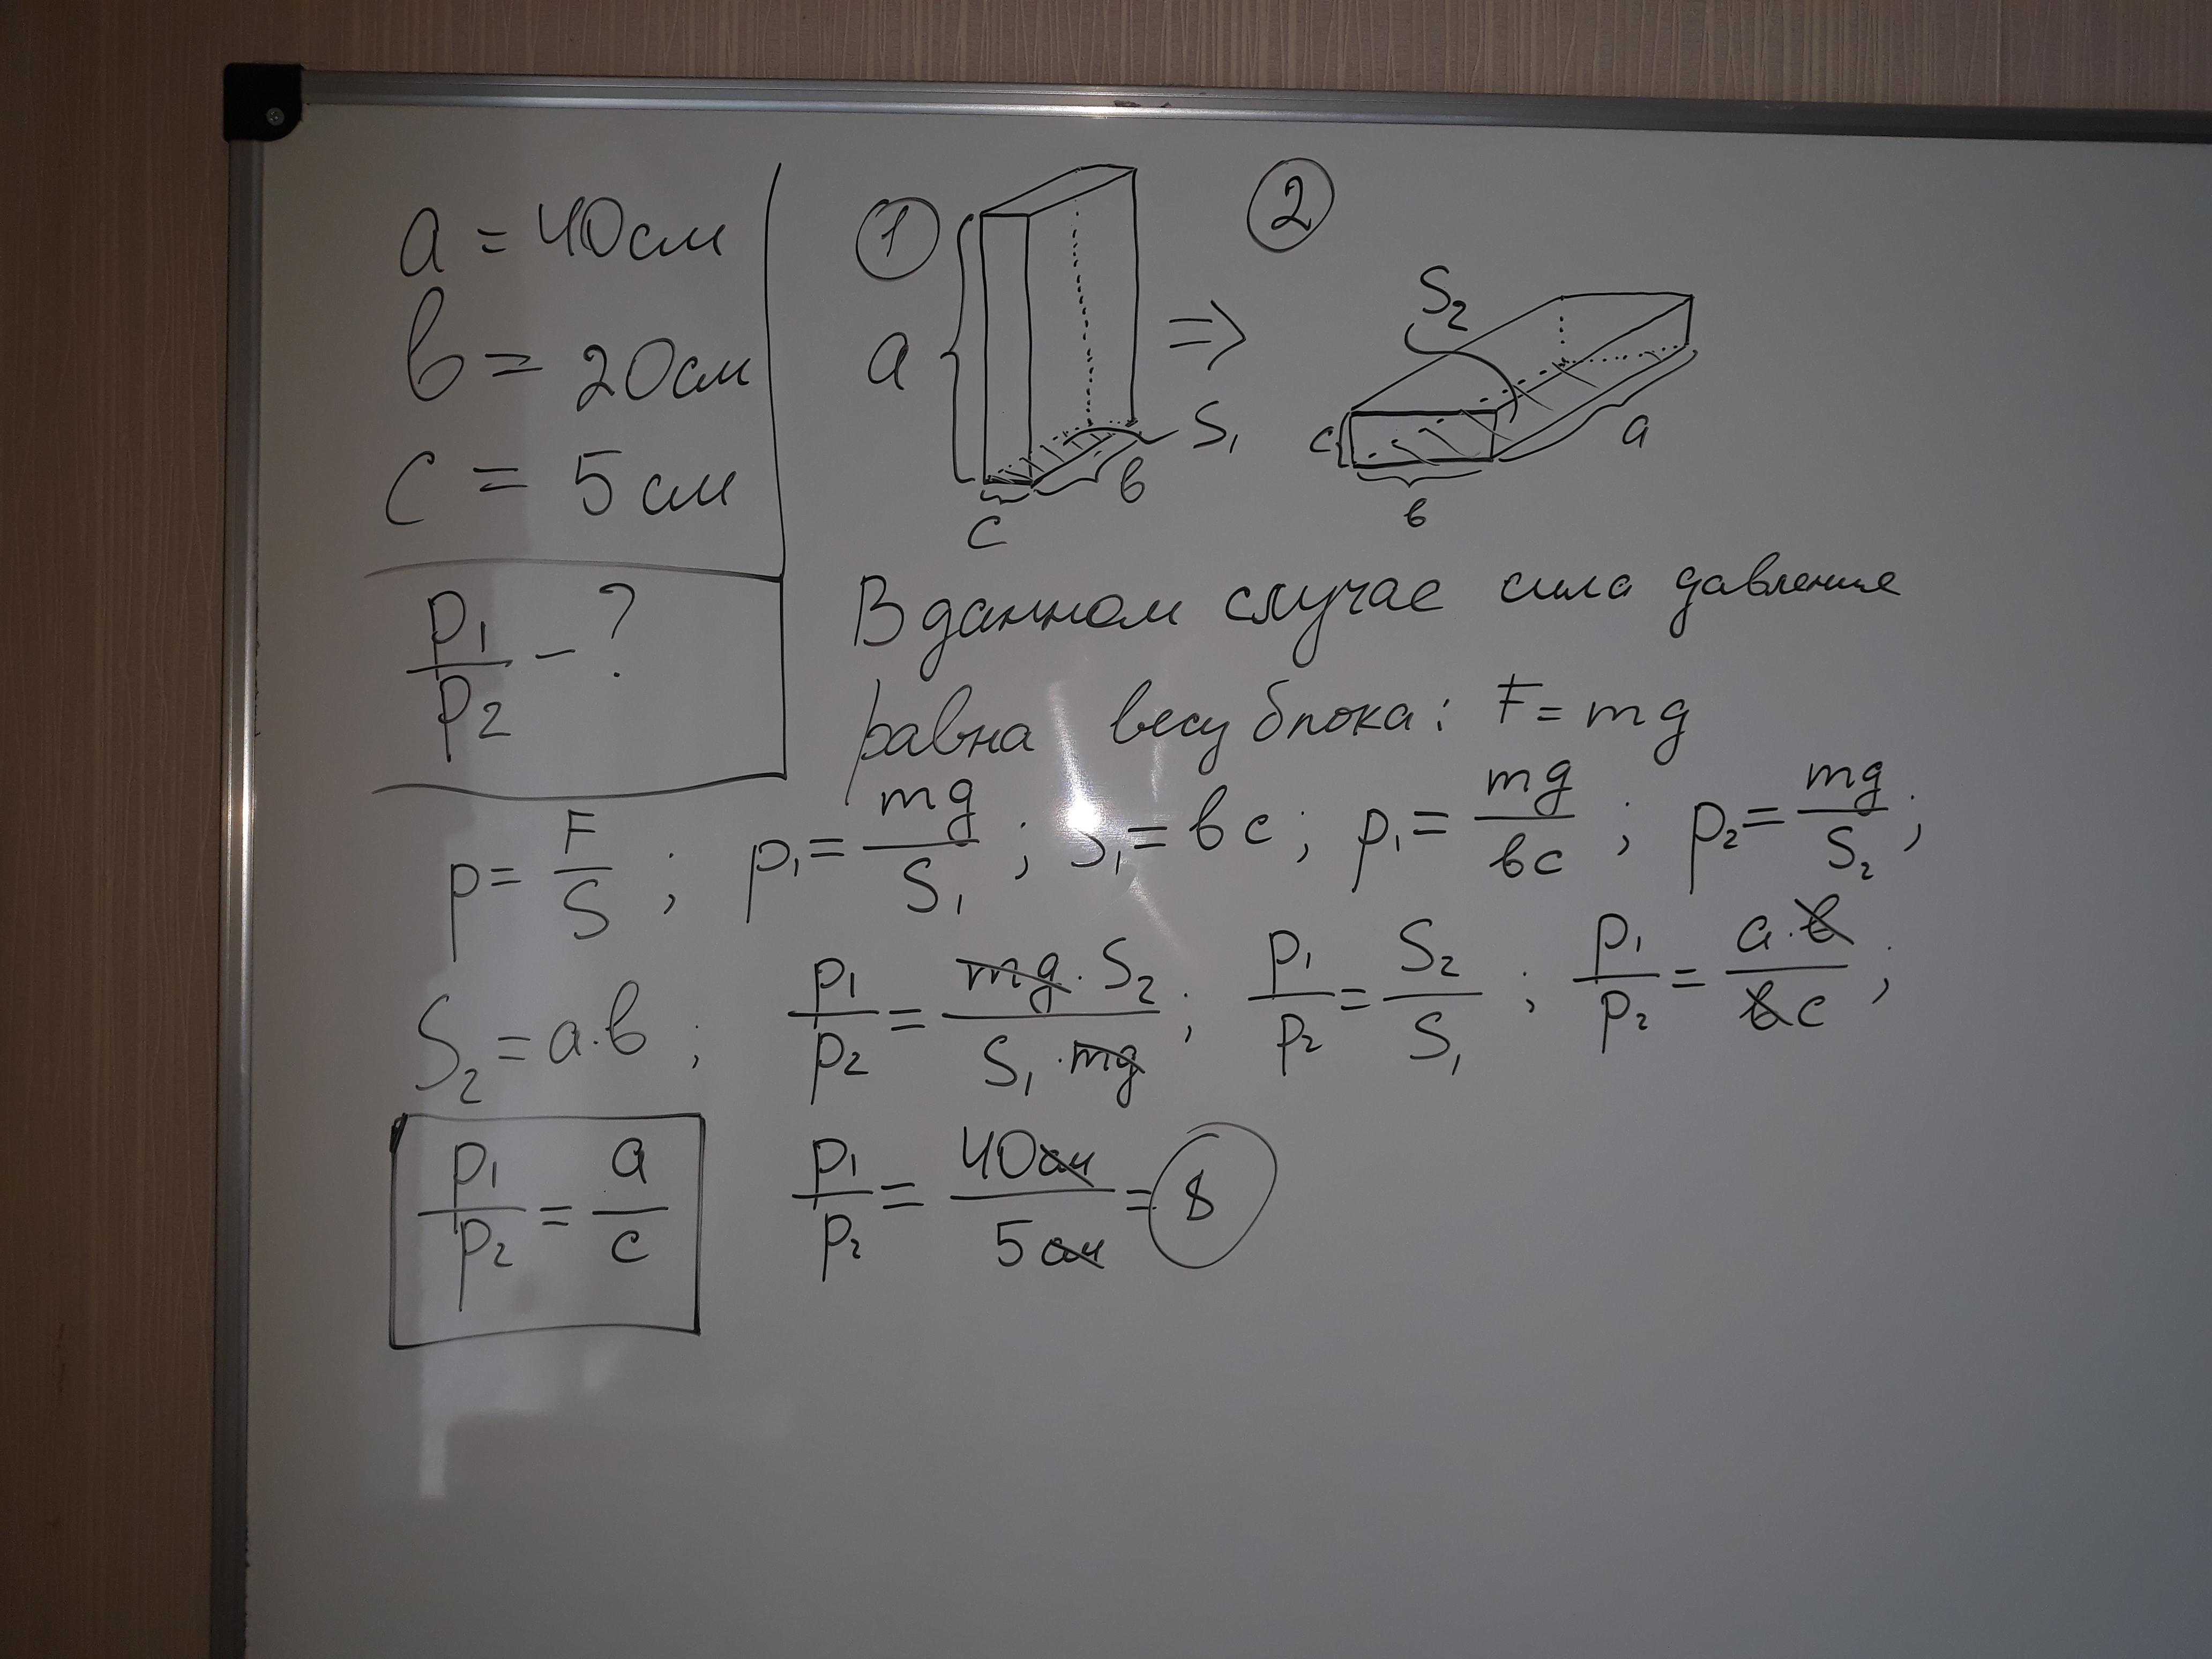 a = 40см
в = 20см
c = 5см
p₁/p₂ - ?
① a c в S₁ ⇒ ② S₂ c в a
В данном случае сила давления
равна весу блока: F = mg
p = F/S ; p₁ = mg/S₁ ; S₁ = вc ; p₁ = mg/вc ; p₂ = mg/S₂ ;
S₂ = a·в ; p₁/p₂ = mg·S₂/S₁·mg ; p₁/p₂ = S₂/S₁ ; p₁/p₂ = a·в/вc ;
p₁/p₂ = a/c p₁/p₂ = 40см/5см = 8